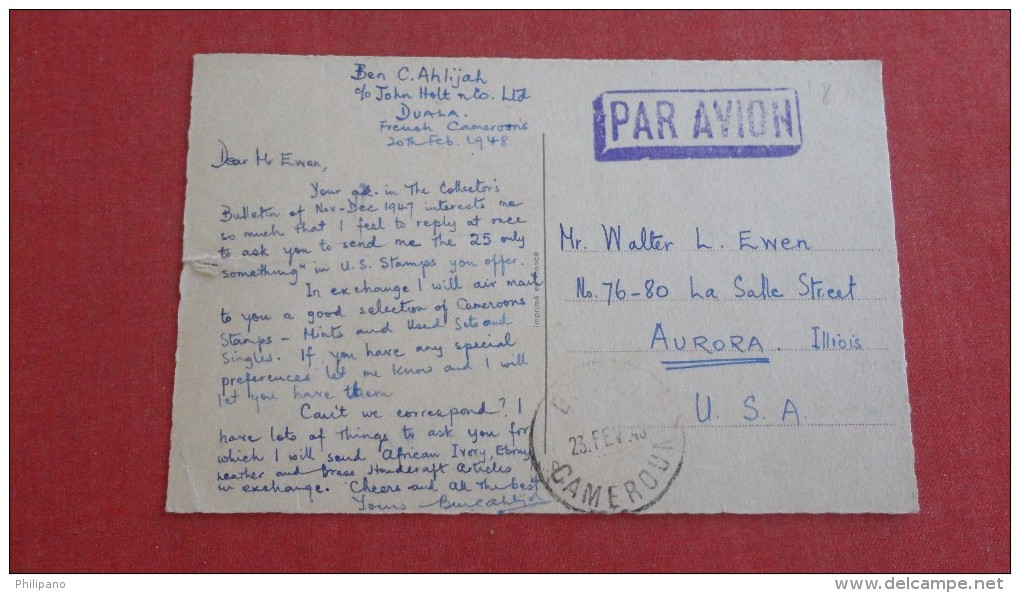 Ben C. Ahlijah
c/o John Holt & Co. Ltd
DUALA.
French Cameroons
20th Feb. 1948
Dear Mr Ewen,
Your in The Collector's
Bulletin of Nov-Dec 1947 interests me
so much that I feel to reply at once
to ask you to send me the 25 only
"something" in U.S. Stamps you offer.
In exchange I will air mail
to you a good selection of Cameroons
Stamps - Mints and Used Sets and
Singles. If you have any special
preferences let me know and I will
let you have them
Can't we correspond? I
have lots of things to ask you for
which I will send African Ivory, Ebony
Leather and Brass Handcraft Articles
in exchange. Cheers and all the best
Yours
Imprimé en France
PAR AVION
Mr. Walter L. Ewen
No. 76-80 La Salle Street
AURORA. Illiois
U. S. A.
23. FEV. 48
CAMEROUN
Philipano
www.delcampe.net